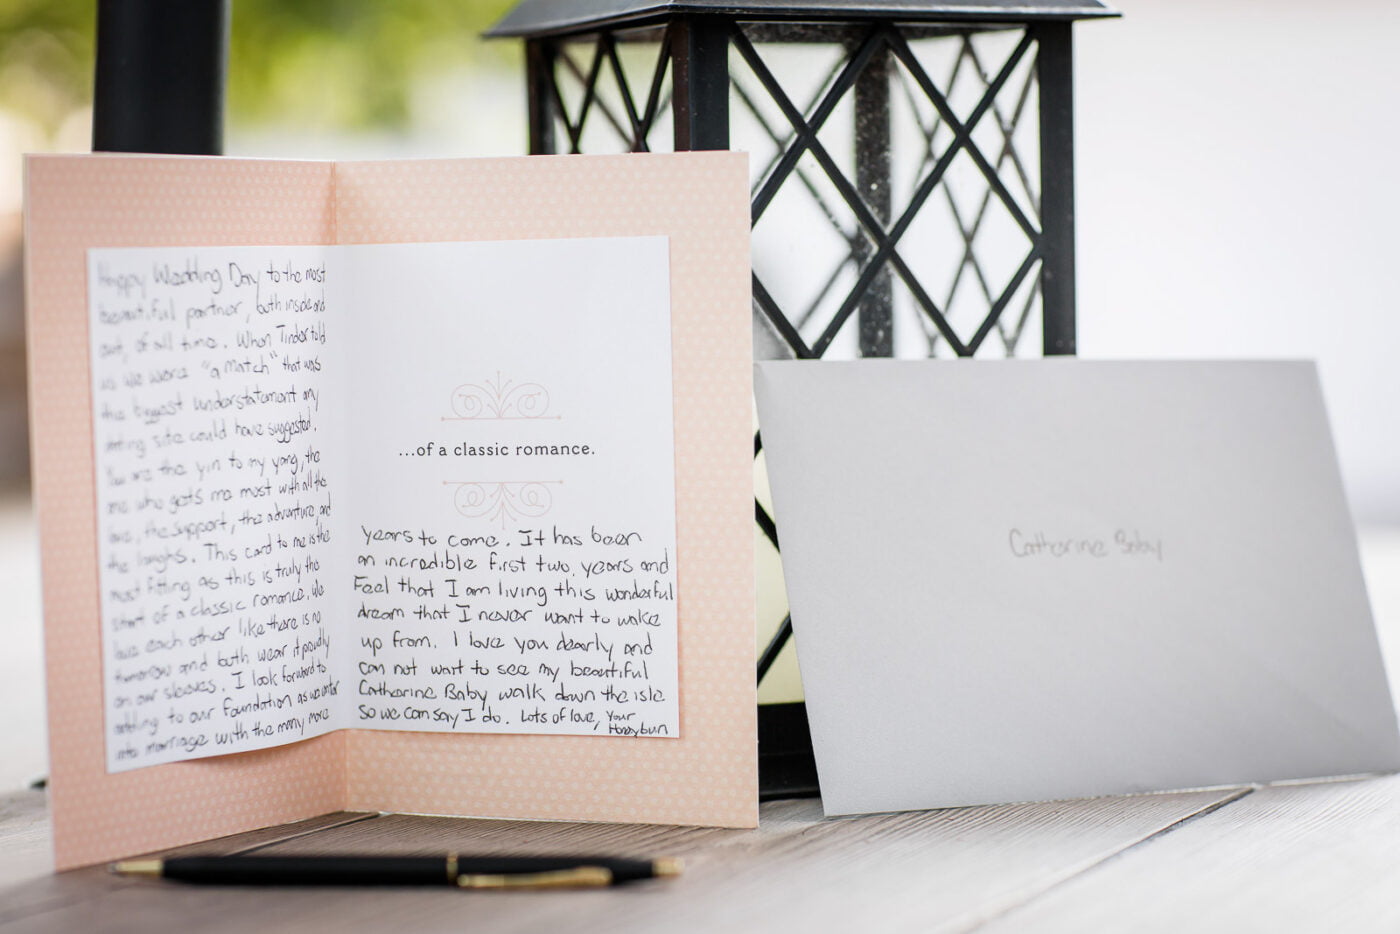 Happy Wedding Day to the most
beautiful partner, both inside and
out, of all time. When Tinder told
us we were "a match" that was
the biggest understatement any
dating site could have suggested.
You are the yin to my yang, the
one who gets me most with all the
love, the support, the adventure, and
the laughs. This card to me is the
most fitting as this is truly the
start of a classic romance. We
love each other like there is no
tomorrow and both wear it proudly
on our sleeves. I look forward to
adding to our foundation as we enter
into marriage with the many more
...of a classic romance.
years to come. It has been
an incredible first two years and
Feel that I am living this wonderful
dream that I never want to wake
up from. I love you dearly and
can not wait to see my beautiful
Catherine Baby walk down the isle
So we can say I do. Lots of love, Your
Honeybun
Catherine Baby